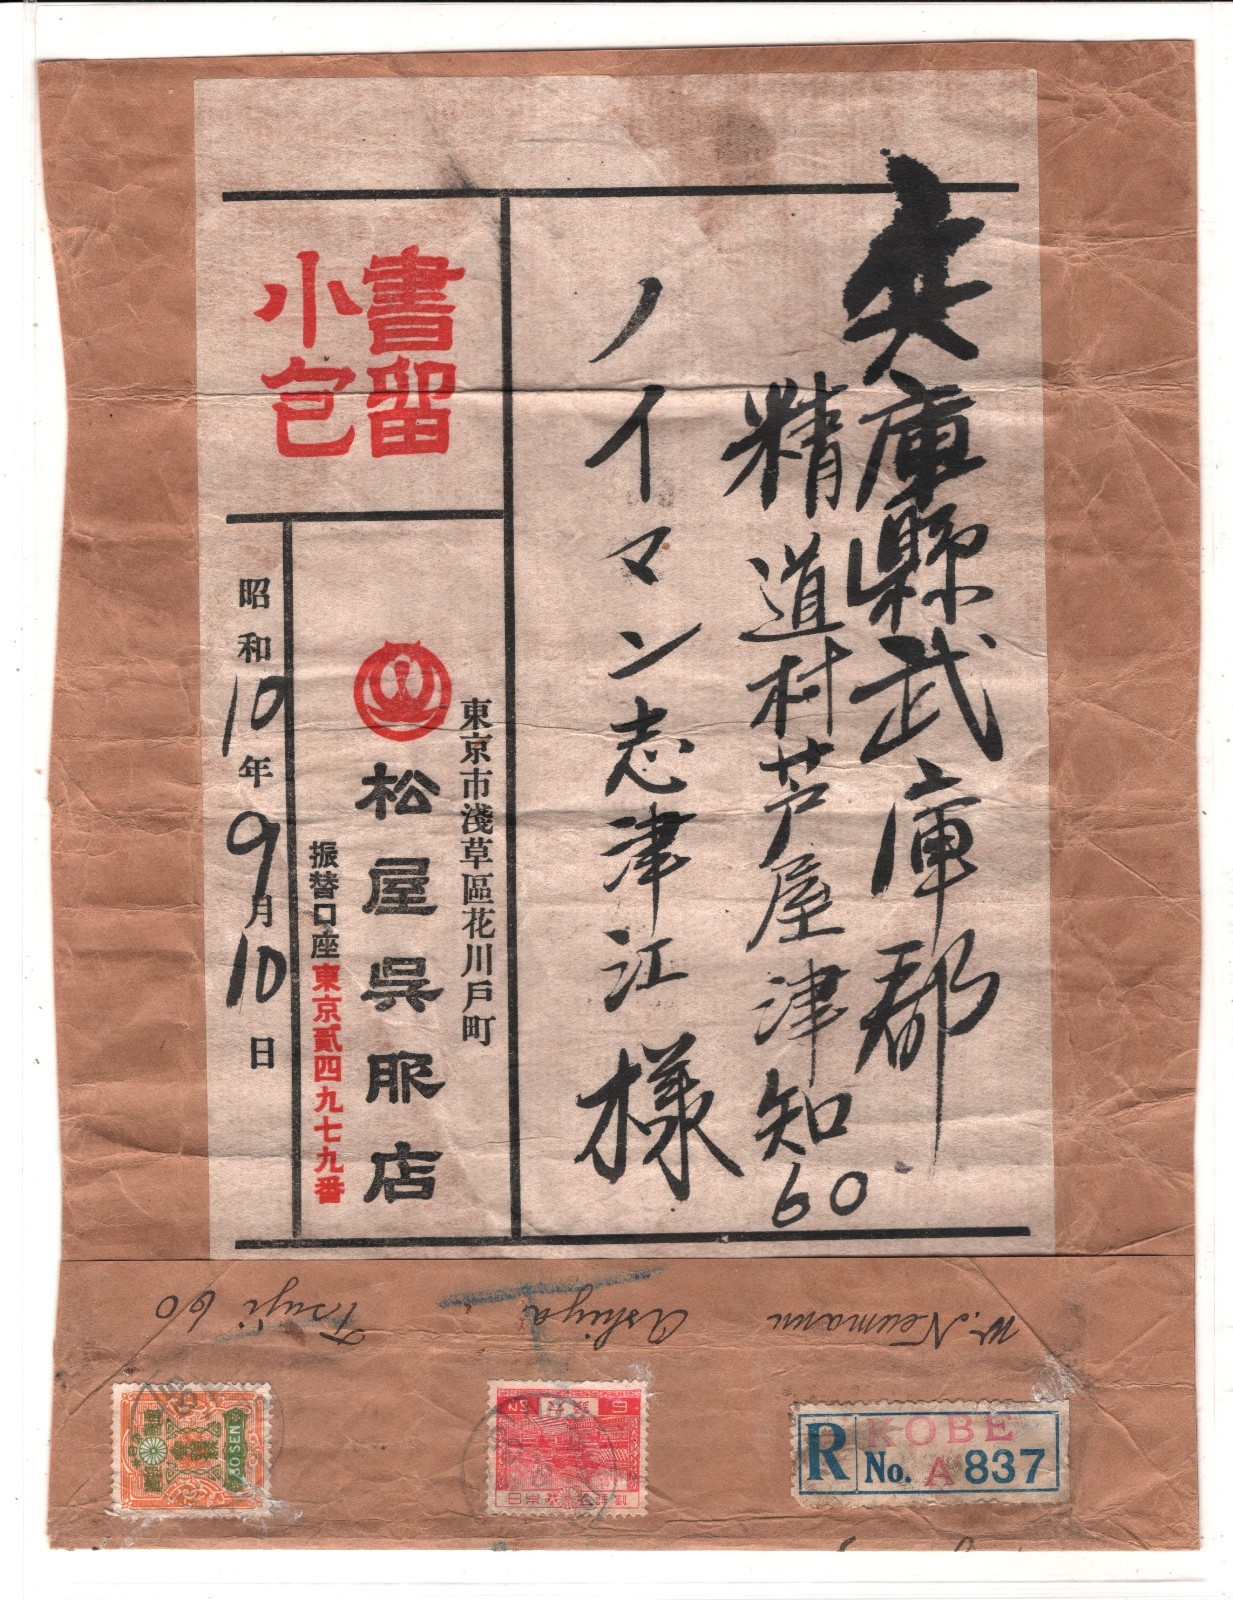 兵庫縣武庫郡
精道村芦屋津知60
ノイマン志津江様
書留
小包
東京市淺草區花川戸町
松屋呉服店
振替口座東京貳四九七九番
昭和10年9月10日
W. Neumann Ashiya Tsuji 60
30 SEN
R KOBE
No. A 837